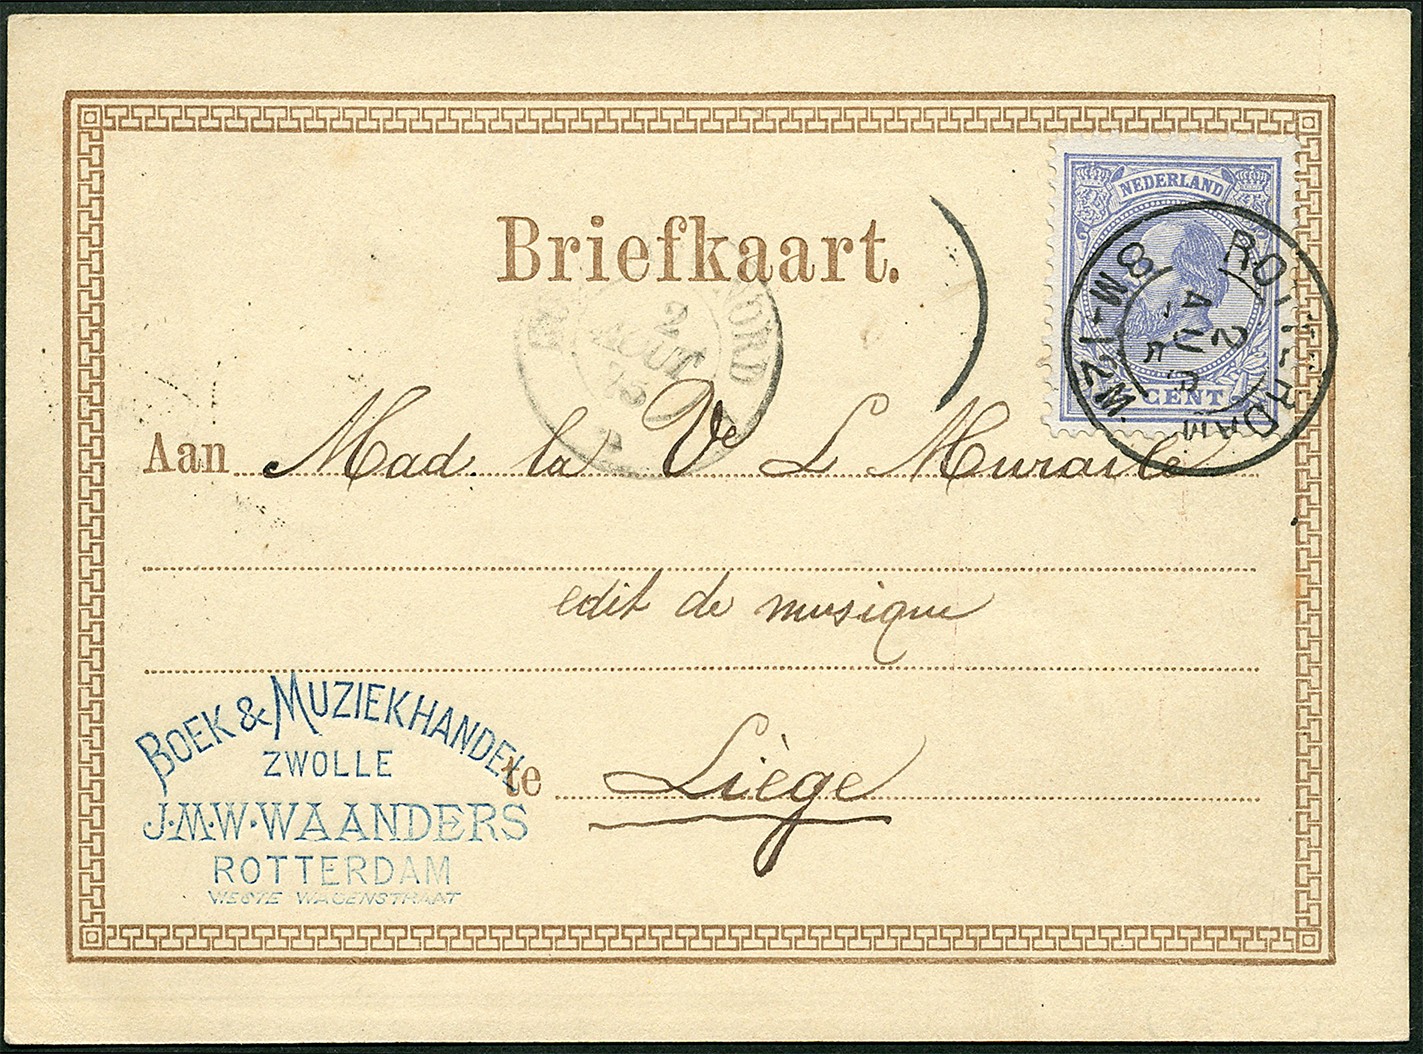 NEDERLAND
CENT
ROTTERDAM
8 M-12 M
2
AUG
Briefkaart.
NORD
2
AOUT
Aan Mad la Ve L Muraile
edit de musique
BOEK & MUZIEKHANDEL
ZWOLLE
te Liège
J.M.W. WAANDERS
ROTTERDAM
WESTE WAGENSTRAAT